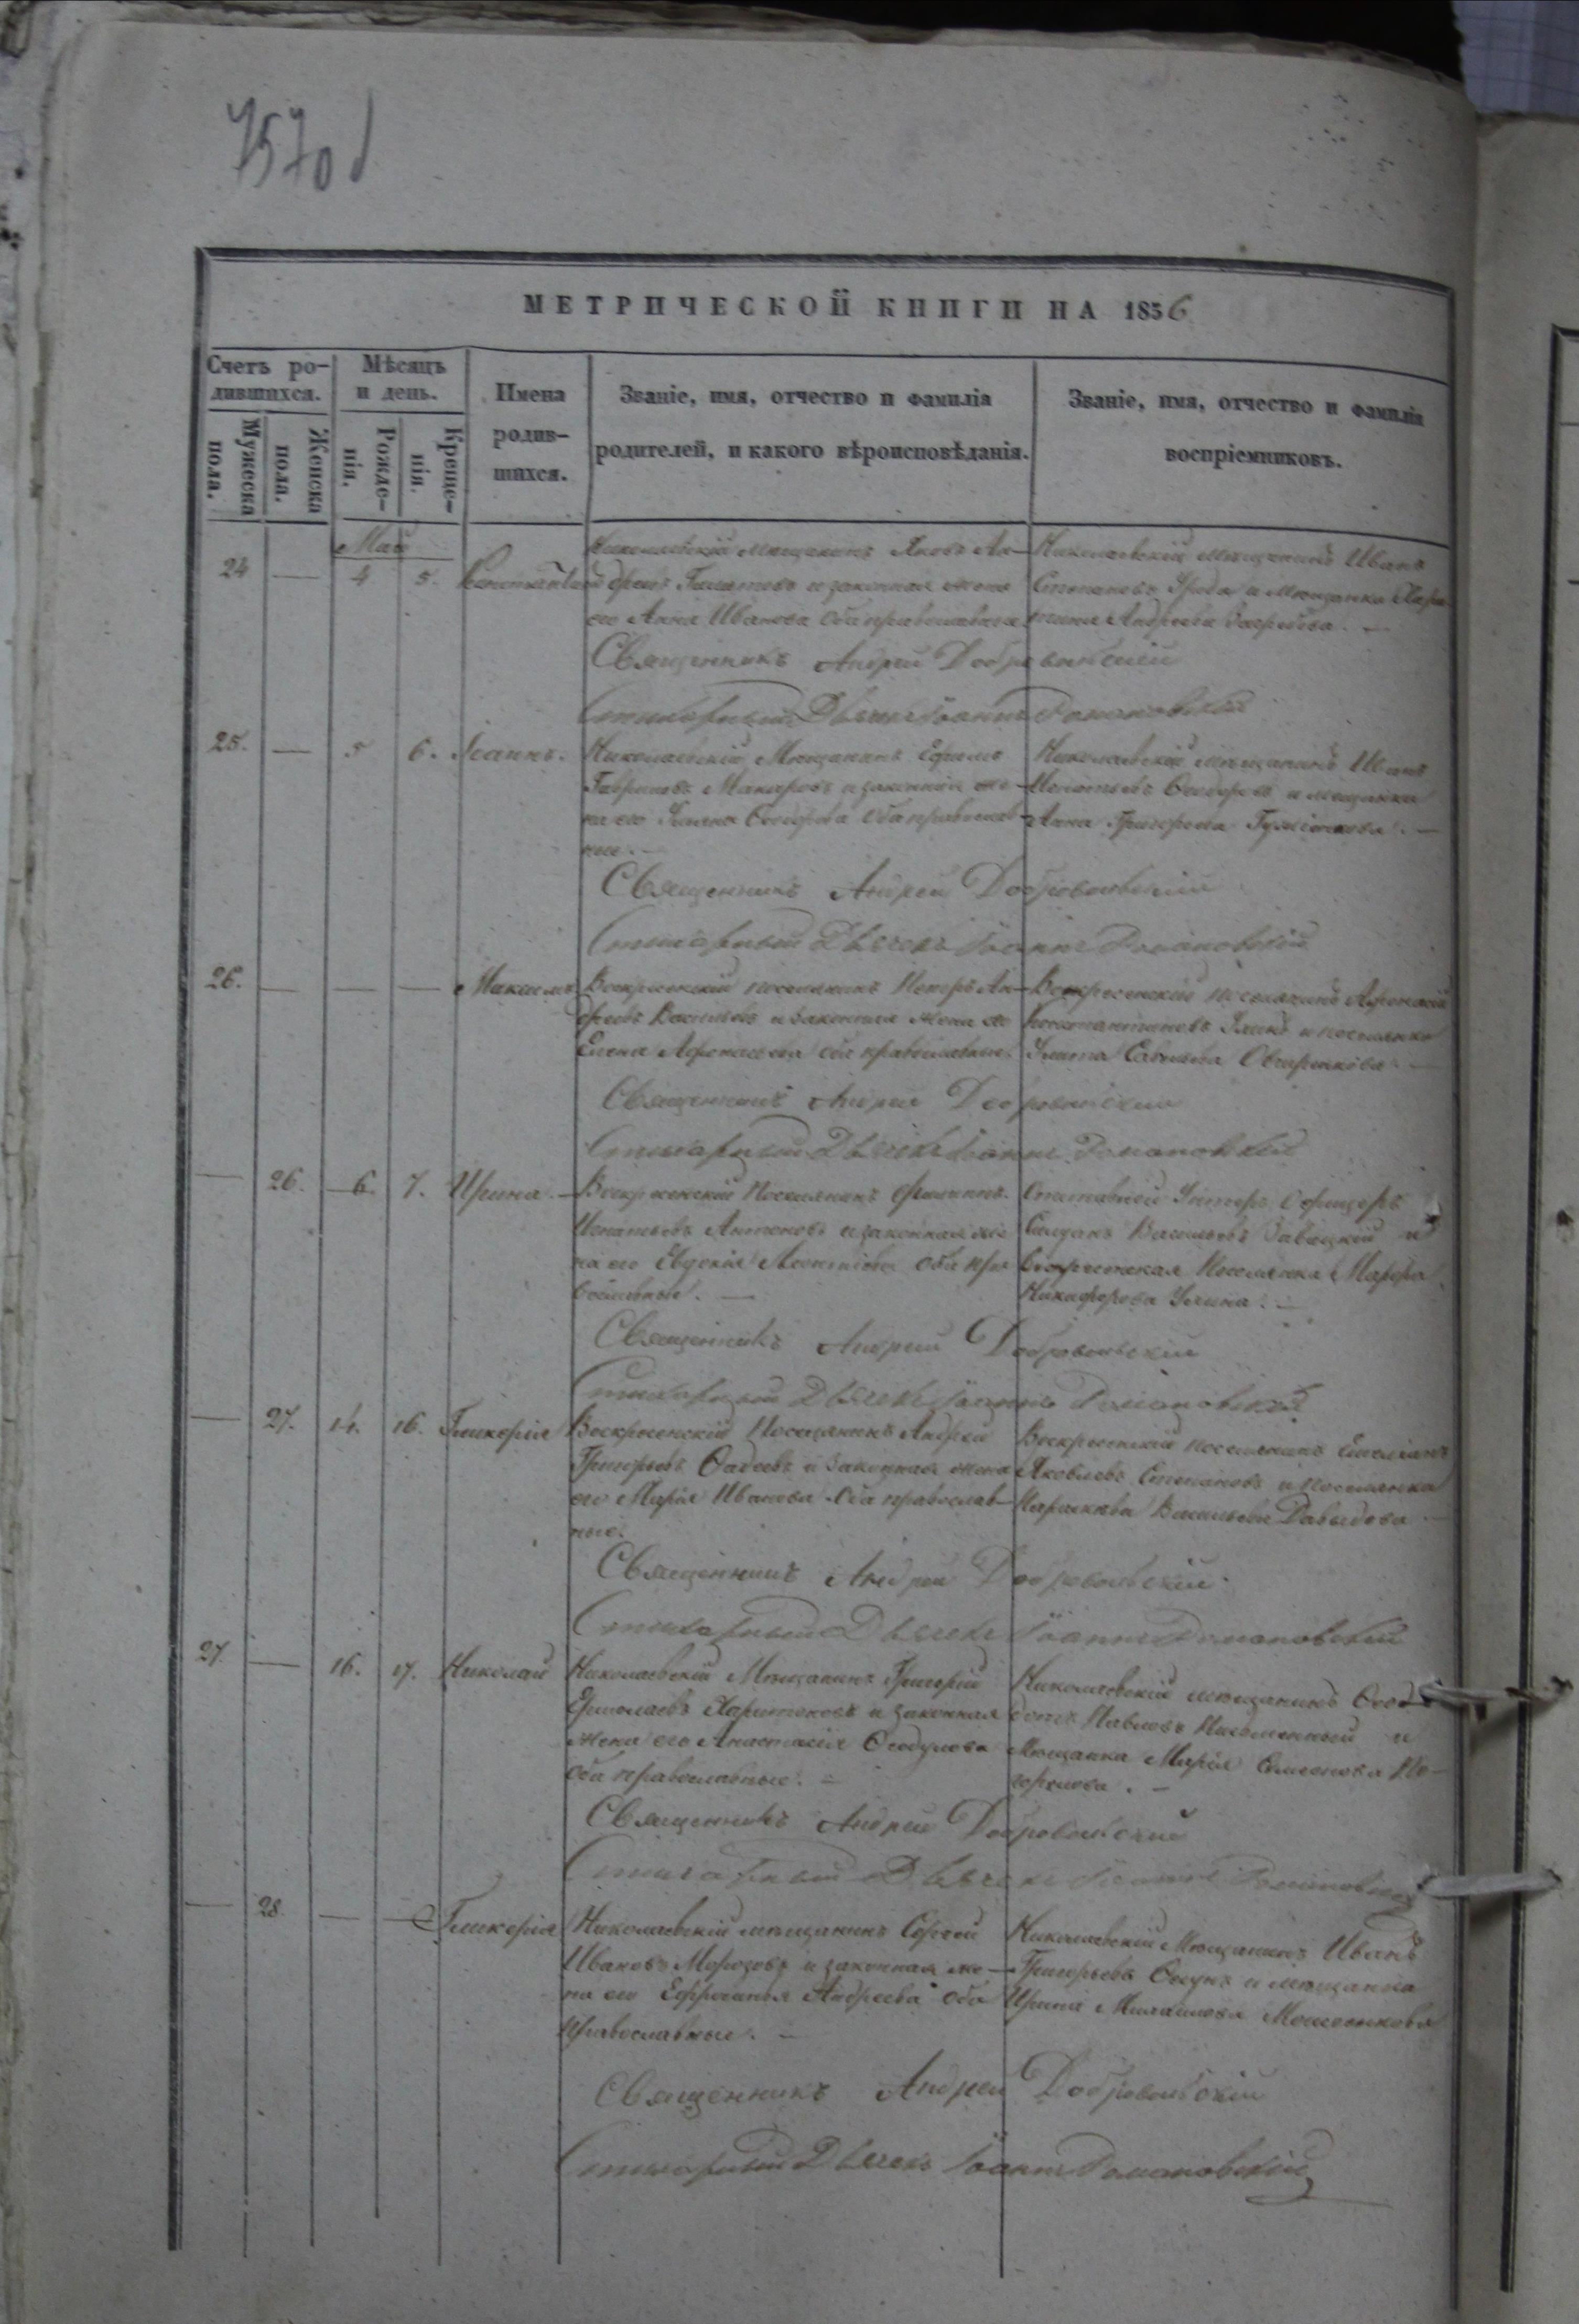 757об
МЕТРИЧЕСКОЙ КНИГИ НА 1856
Счетъ ро-
дившихся.
Мужеска
пола.
Женска
пола.
Мѣсяцъ
и день.
Рожде-
нія.
Креще-
нія.
Имена
родив-
шихся.
Званіе, имя, отчество и фамилія
родителей, и какого вѣроисповѣданія.
Званіе, имя, отчество и фамилія
воспріемниковъ.
Май
24 — 4 5. Константинъ
Николаевскій мѣщанинъ Яковъ Ан-
дреевъ и законная жена
его Анна Иванова оба православные
Николаевскій мѣщанинъ Иванъ
Степановъ и мѣщанка Хари-
тина Андреева
Священникъ Андрей Добровольскій
Стихарный Дьячекъ Іоаннъ Романовскій
25. — 5 6. Іоаннъ.
Николаевскій Мѣщанинъ Ефимъ
Гавриловъ Макаровъ и законная же-
на его Ѳеодорова оба православ-
ные. —
Николаевскій мѣщанинъ Иванъ
Игнатьевъ Ѳеодоровъ и мѣщанка
Анна Григорьева —
Священникъ Андрей Добровольскій
Стихарный Дьячекъ Іоаннъ Романовскій
26. — — — Максимъ
Воскресенскій поселянинъ Петръ Ан-
дреевъ Васильевъ и законная жена его
Елена Афанасьева оба православные.
Воскресенскій поселянинъ Афанасій
Константиновъ и поселянка
Улита Савельева Овчаренкова. —
Священникъ Андрей Добровольскій
Стихарный Дьячекъ Іоаннъ Романовскій
— 26. 6. 7. Ирина. —
Воскресенскій Поселянинъ Филиппъ
Игнатьевъ Антоновъ и законная же
на его Евдокія Леонтіева оба пра
вославные. —
Отставной Унтеръ Офицеръ
Васильевъ Завацкій и
Воскресенская Поселянка Марфа
Никифорова —
Священникъ Андрей Добровольскій
Стихарный Дьячекъ Іоаннъ Романовскій
— 27. 14. 16. Гликерія
Воскресенскій Поселянинъ Андрей
Григорьевъ Ѳадеевъ и законная жена
его Марія Иванова оба православ-
ные.
Воскресенскій поселянинъ Емеліанъ
Яковлевъ Степановъ и поселянка
Параскева Васильева Давыдова —
Священникъ Андрей Добровольскій
Стихарный Дьячекъ Іоаннъ Романовскій
27. — 16. 17. Николай
Николаевскій Мѣщанинъ Григорій
Ермолаевъ Харитоновъ и законная
жена его Анастасія Ѳеодулова
оба православные. —
Николаевскій мѣщанинъ Ѳеодо-
Павловъ Письменный и
Мѣщанка Марія Семенова По-
горелова. —
Священникъ Андрей Добровольскій
Стихарный Дьячекъ Іоаннъ Романовскій
— 28. — — Гликерія
Николаевскій мѣщанинъ Сергей
Ивановъ Морозовъ и законная же-
на его Ефросинья Андреева оба
Православные. —
Николаевскій Мѣщанинъ Иванъ
Григорьевъ и мѣщанка
Ирина
Священникъ Андрей Добровольскій
Стихарный Дьячекъ Іоаннъ Романовскій